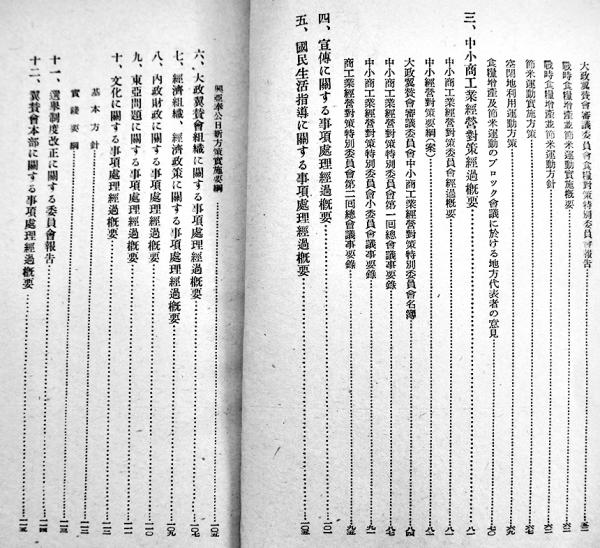 大政翼賛會審議委員會食糧對策特別委員會報告
戰時食糧增産並節米運動實施概要
戰時食糧增産並節米運動方針
節米運動實施方策
空閑地利用運動方策
食糧增産及節米運動のブロック會議に於ける地方代表者の意見
三、中小商工業經營對策經過概要
中小商工業經營對策委員會經過概要
中小經營對策要綱(案)
大政翼賛會審議委員會中小商工業經營對策特別委員會名簿
中小商工業經營對策特別委員會第一回總會議事要錄
中小商工業經營對策特別委員會小委員會議事要錄
商工業經營對策特別委員會第二回總會議事要錄
四、宣傳に關する事項處理經過概要
五、國民生活指導に關する事項處理經過概要
興亞奉公日新方策實施要綱
六、大政翼賛會組織に關する事項處理經過概要
七、經濟組織、經濟政策に關する事項處理經過概要
八、内政財政に關する事項處理經過概要
九、東亞問題に關する事項處理經過概要
十、文化に關する事項處理經過概要
基本方針
實踐要綱
十一、選擧制度改正に關する委員會報告
十二、翼賛會本部に關する事項處理經過概要